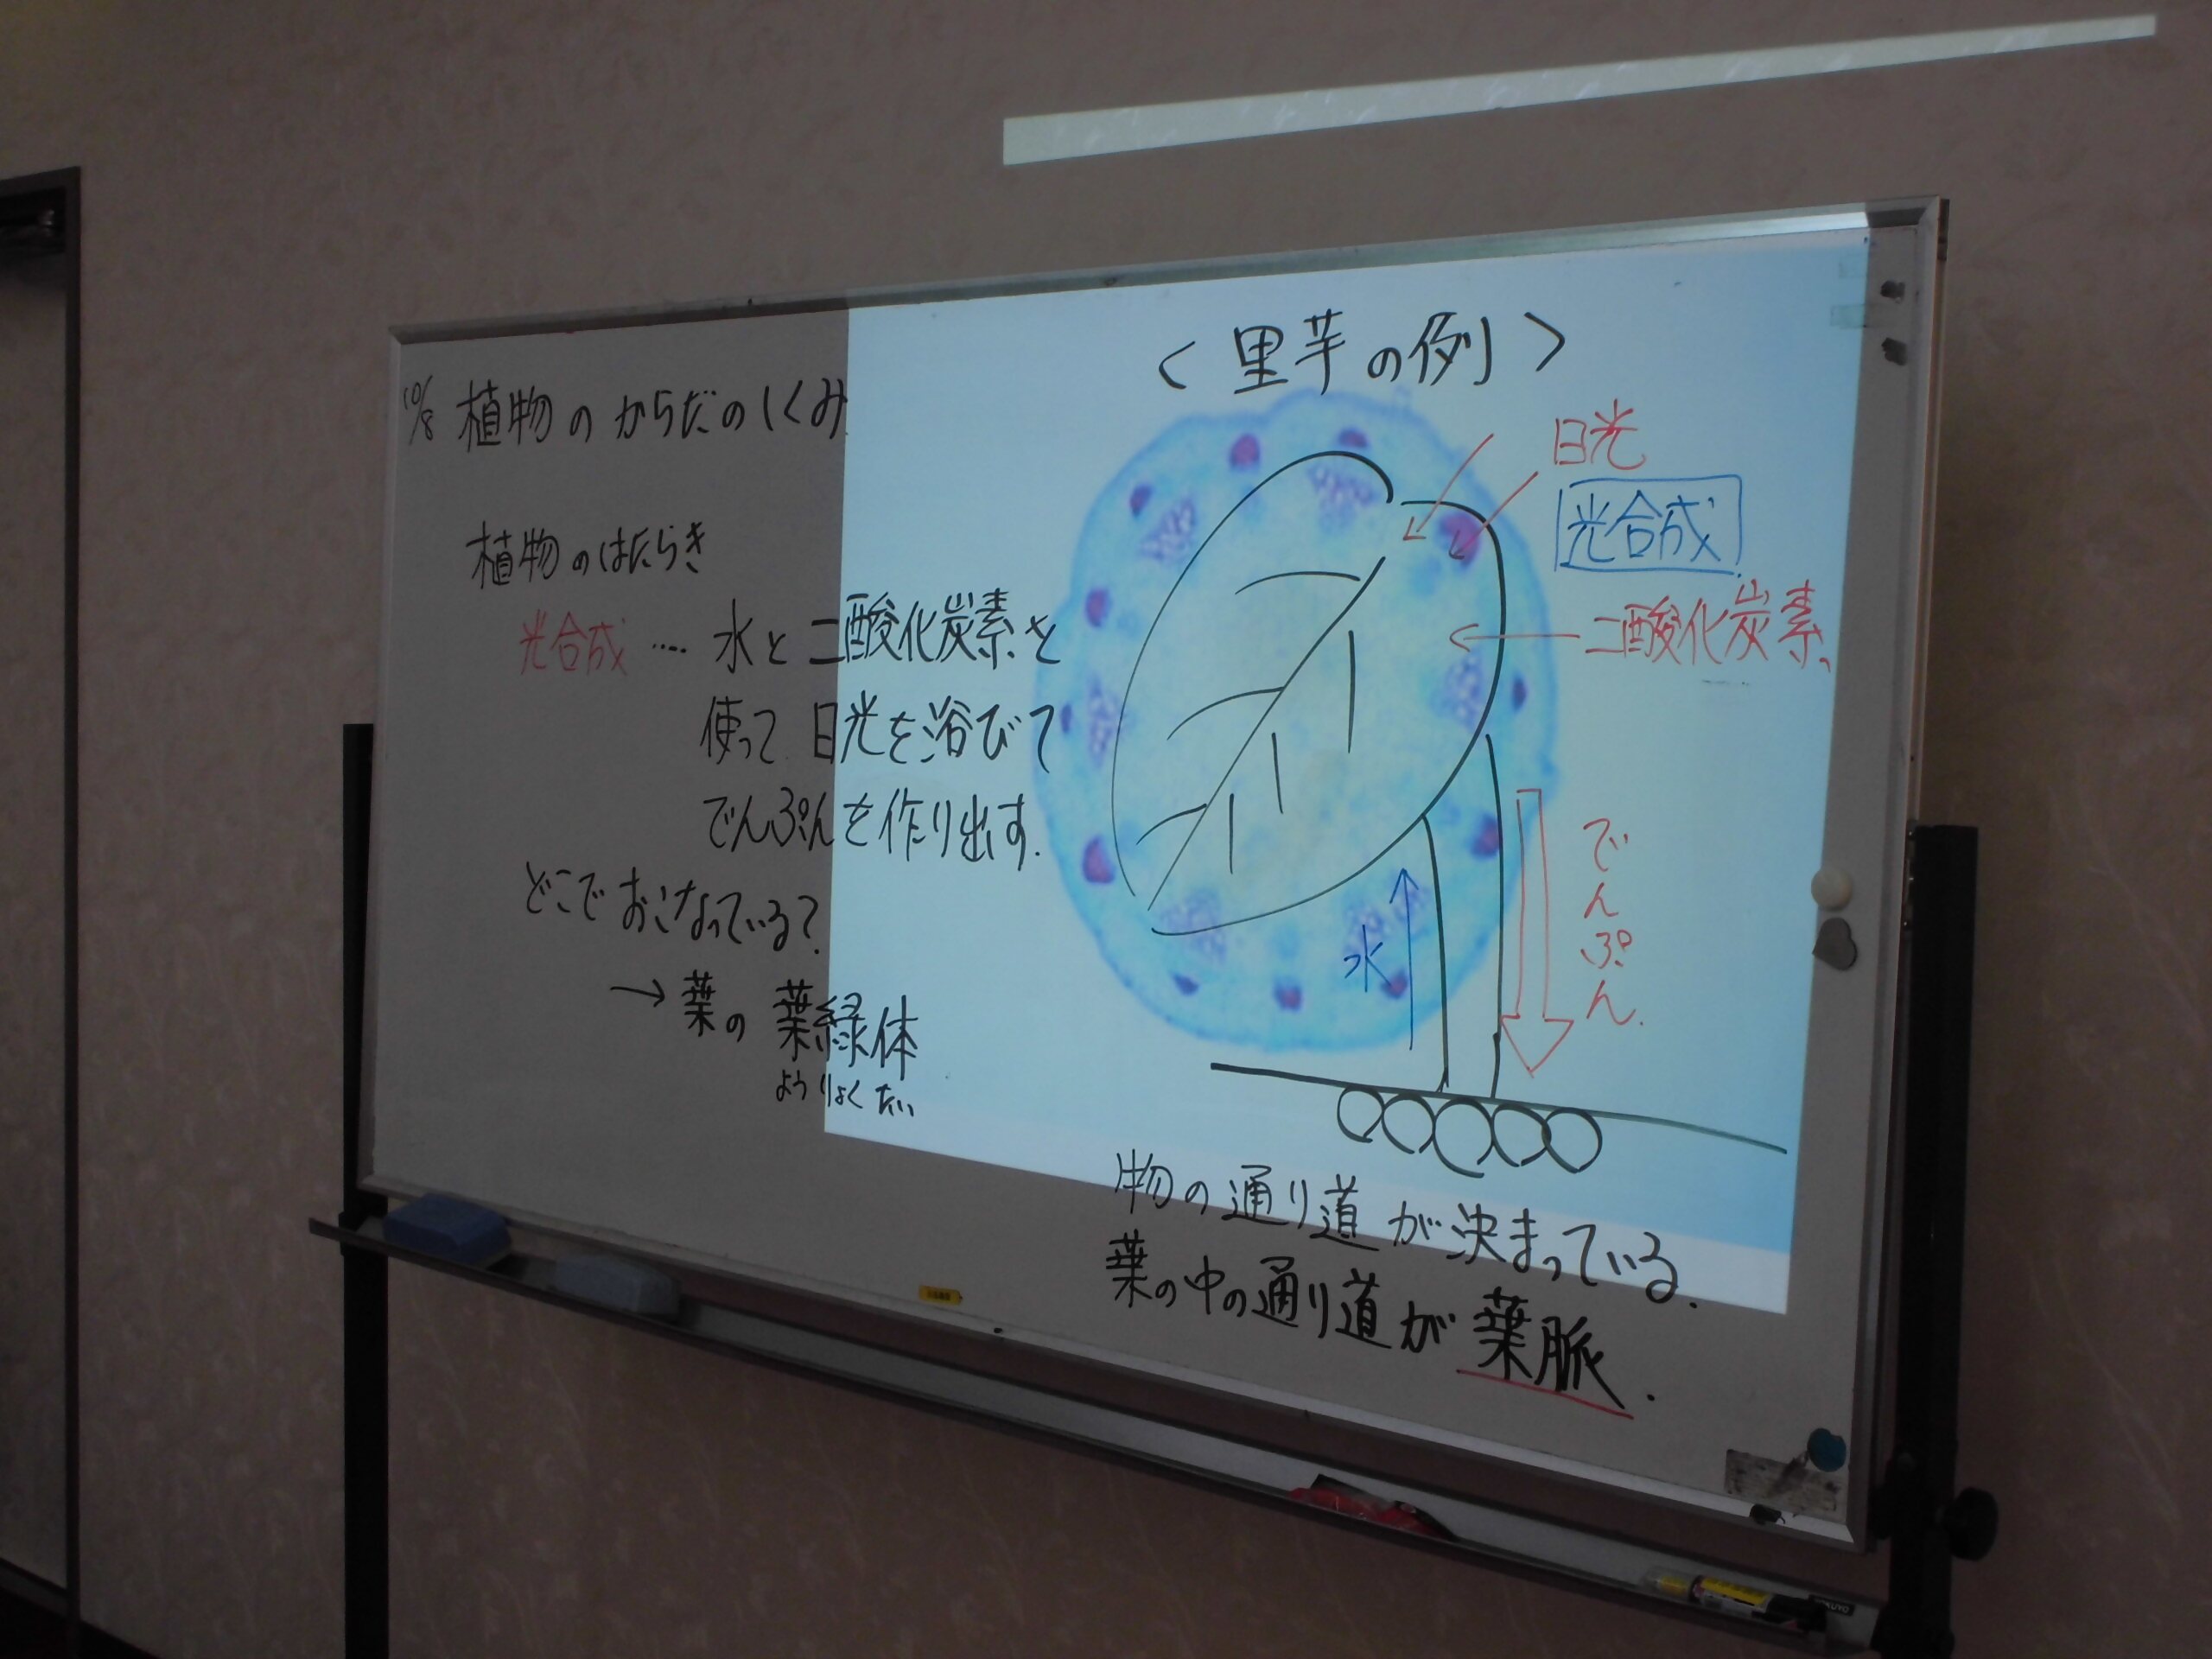 10/8 植物のからだのしくみ
植物のはたらき
光合成 ‥‥ 水と二酸化炭素を
使って 日光を浴びて
でんぷんを作り出す.
どこで おこなっている?
→ 葉の 葉緑体
ようりょくたい
<里芋の例>
日光
光合成
二酸化炭素
水
でんぷん
物の通り道が決まっている.
葉の中の通り道が 葉脈.
KOKUYO